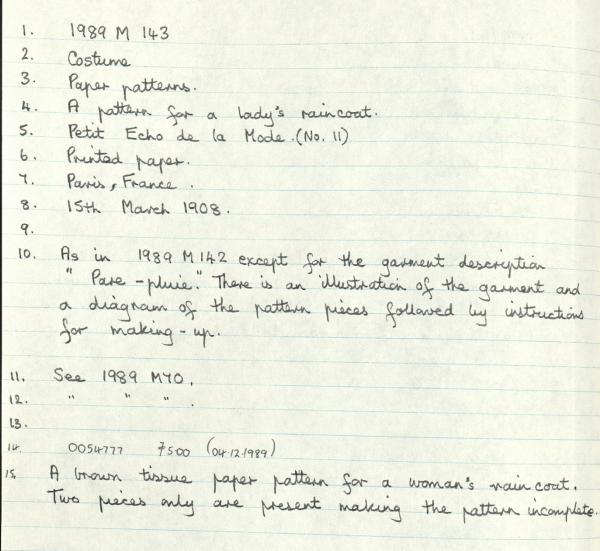 1. 1989 M 143
2. Costume
3. Paper patterns.
4. A pattern for a lady's raincoat.
5. Petit Echo de la Mode. (No. 11)
6. Printed paper.
7. Paris, France.
8. 15th March 1908.
9.
10. As in 1989 M 142 except for the garment description
" Pare-pluie." There is an illustration of the garment and
a diagram of the pattern pieces followed by instructions
for making-up.
11. See 1989 M70.
12. " " " .
13.
14. 0054777 7500 (04.12.1989)
15. A brown tissue paper pattern for a woman's raincoat.
Two pieces only are present making the pattern incomplete.